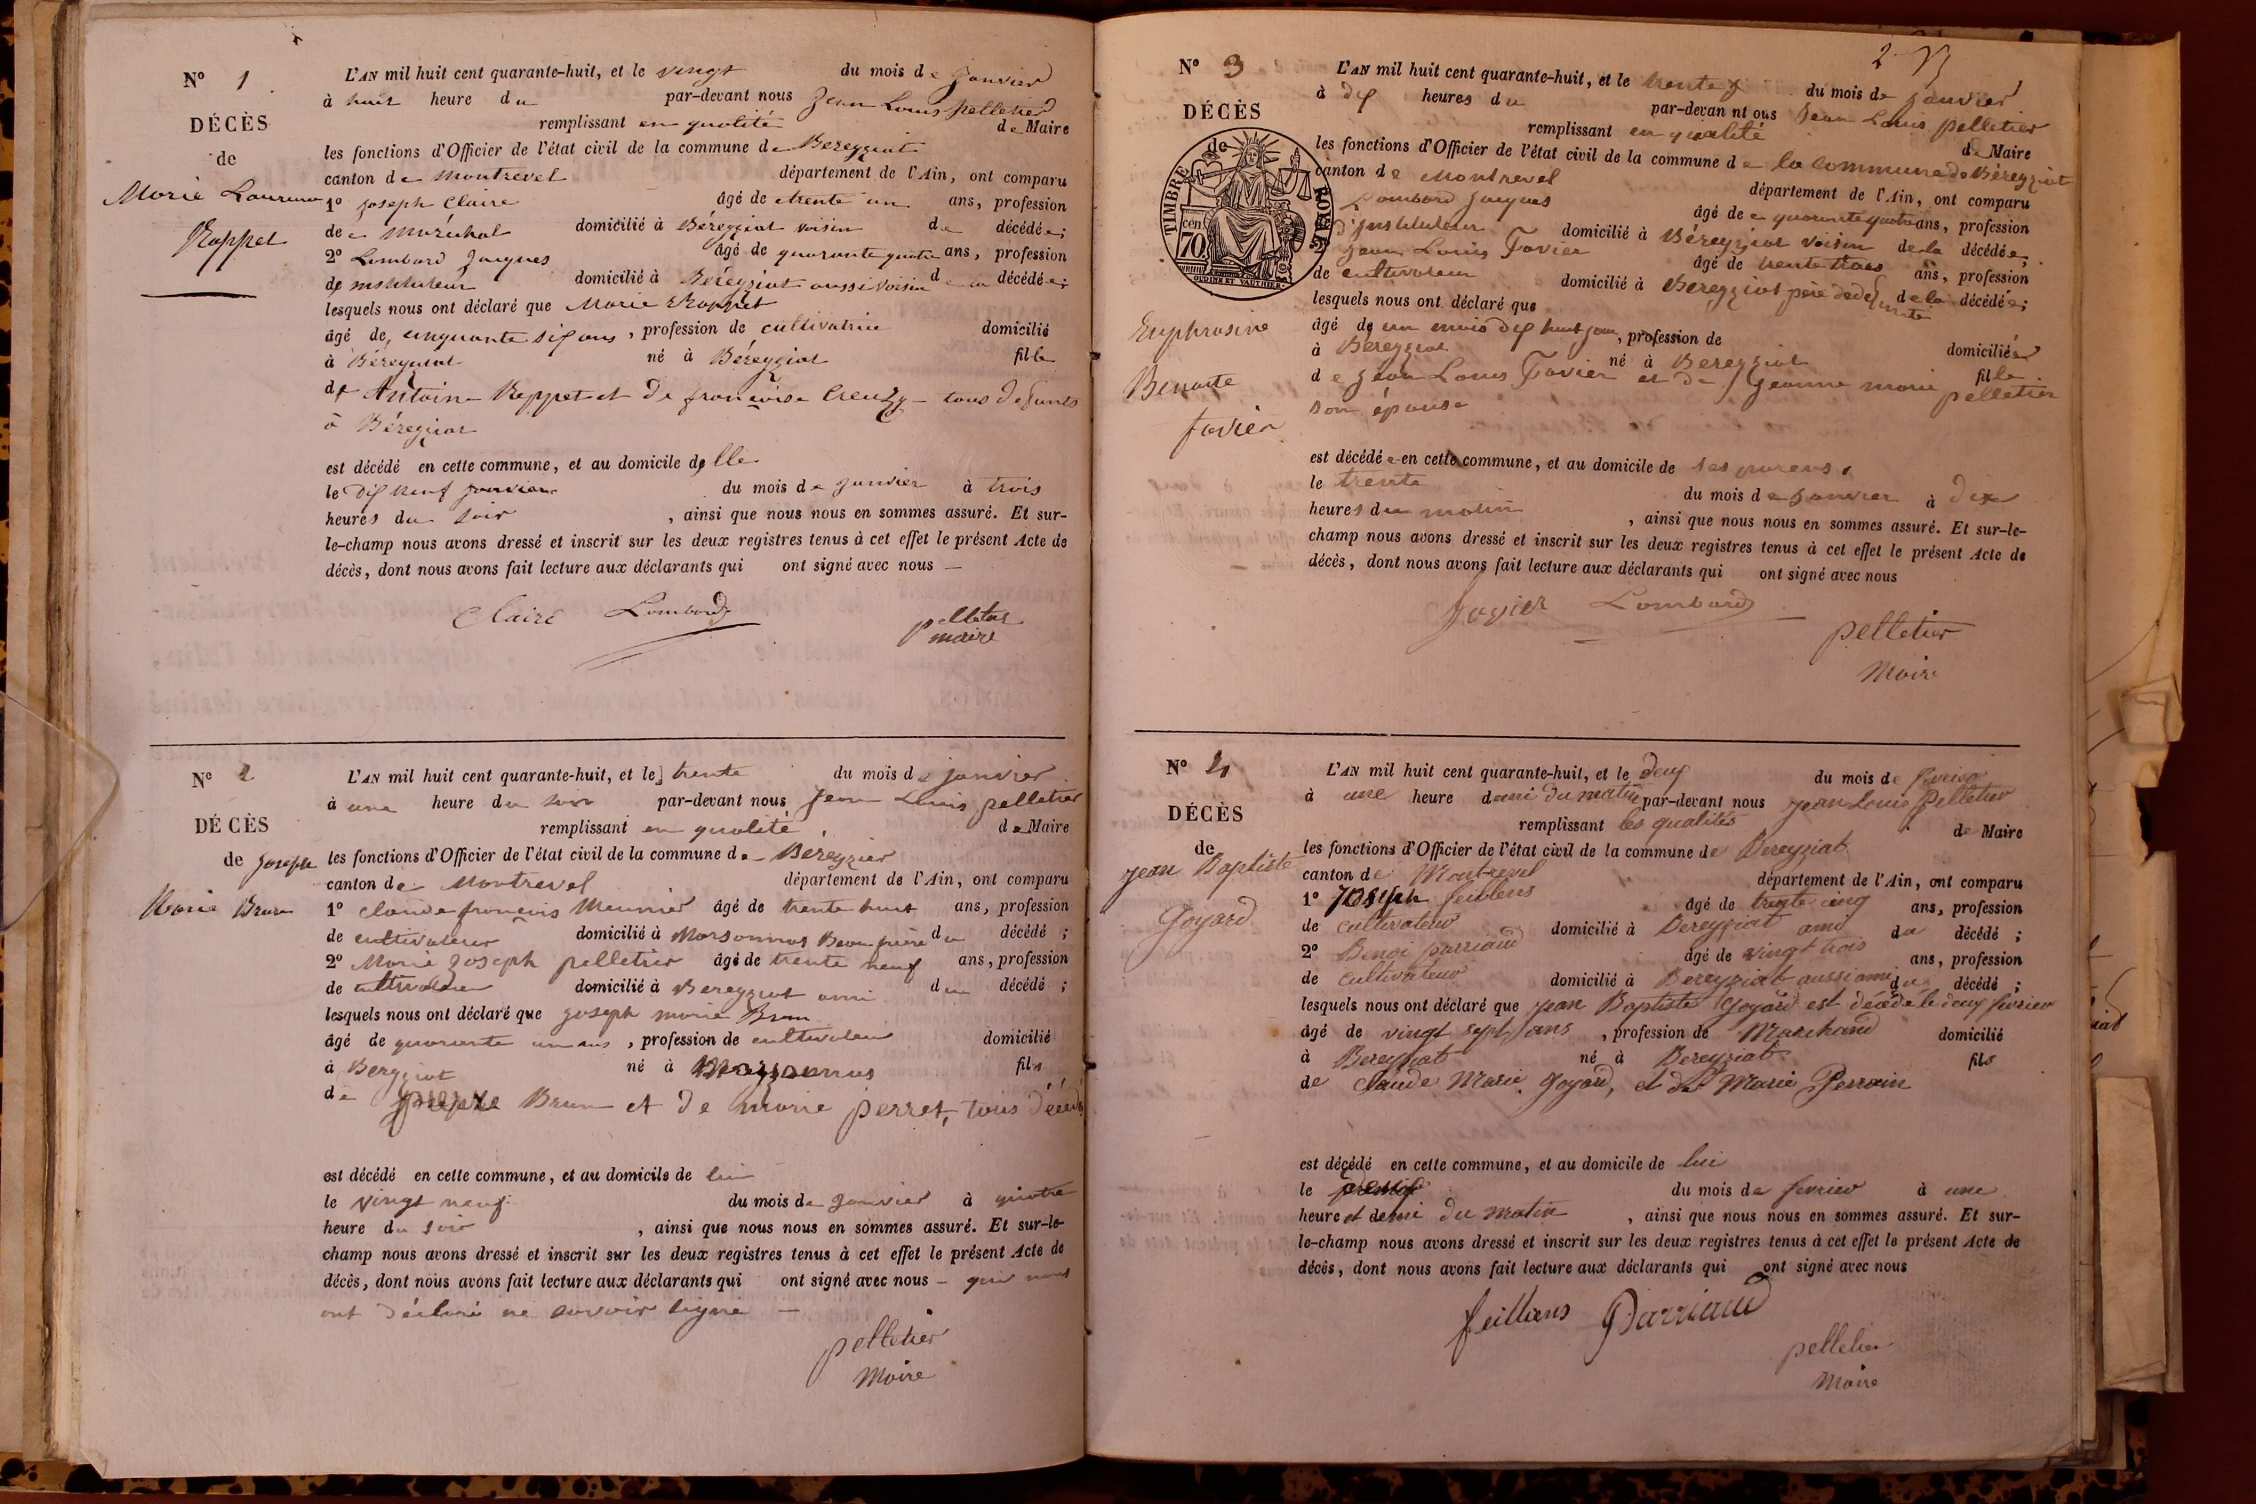 N° 1
DÉCÈS
de
Marie Laurence
Rappet
L'AN mil huit cent quarante-huit, et le vingt du mois de janvier
à huit heure du par-devant nous Jean Louis pelletier
remplissant en qualité de Maire
les fonctions d'Officier de l'état civil de la commune de Bereyziat
canton de Montrevel département de l'Ain, ont comparu
1° Joseph Claire âgé de trente un ans, profession
de maréchal domicilié à Béreyziat voisin de décédée;
2° Lombard Jacques âgé de quarante quatre ans, profession
de instituteur domicilié à Béreyziat aussi voisin de la décédée;
lesquels nous ont déclaré que Marie Rappet
âgé de cinquante six ans, profession de cultivatrice domicilié
à Béreyziat né à Béreyziat fille
de Antoine Rappet et de françoise Creuzy tous defunts
à Béreyziat
est décédé en cette commune, et au domicile delle
le dix neuf janvier du mois de janvier à trois
heures du soir, ainsi que nous nous en sommes assuré. Et sur-
le-champ nous avons dressé et inscrit sur les deux registres tenus à cet effet le présent Acte de
décès, dont nous avons fait lecture aux déclarants qui ont signé avec nous —
Claire Lombard pelletier
maire
N° 2
DÉCÈS
de Joseph
Marie Brun
L'AN mil huit cent quarante-huit, et le trente du mois de janvier
à une heure du soir par-devant nous Jean Louis pelletier
remplissant en qualité de Maire
les fonctions d'Officier de l'état civil de la commune de Bereyziat
canton de Montrevel département de l'Ain, ont comparu
1° Claude françois Meunier âgé de trente huit ans, profession
de cultivateur domicilié à Marsonnas Beau frère du décédé;
2° Marie Joseph pelletier âgé de trente neuf ans, profession
de cultivateur domicilié à Bereyziat ami du décédé;
lesquels nous ont déclaré que Joseph marie Brun
âgé de quarante un ans, profession de cultivateur domicilié
à Beryziat né à Marsonnas fils
de pierre Brun et de marie perret, tous décédés
est décédé en cette commune, et au domicile de lui
le vingt neuf du mois de janvier à quatre
heure du soir, ainsi que nous nous en sommes assuré. Et sur-le-
champ nous avons dressé et inscrit sur les deux registres tenus à cet effet le présent Acte de
décès, dont nous avons fait lecture aux déclarants qui ont signé avec nous — qui nous
ont déclaré ne savoir signé —
pelletier
Maire
2
N° 3
DÉCÈS
de
TIMBRE ROYAL
70 cen
Euphrosine
Benoite
favier
L'AN mil huit cent quarante-huit, et le trente du mois de janvier
à dix heures du par-devan nt ous Jean Louis pelletier
remplissant en qualité de Maire
les fonctions d'Officier de l'état civil de la commune de la commune de Béreyziat
canton de Montrevel département de l'Ain, ont comparu
Lombard Jacques âgé de quarante quatre ans, profession
d'instituteur domicilié à Béreyziat voisin de la décédée;
Jean Louis Favier âgé de trente trois ans, profession
de cultivateur domicilié à Bereyziat père de defunte de la décédée;
lesquels nous ont déclaré que
âgé de un mois dix huit jour, profession de domiciliée
à Bereyziat né à Bereyziat fille
de Jean Louis Favier et de Jeanne marie pelletier
son épouse
est décédée en cette commune, et au domicile de ses parens
le trente du mois de janvier à dix
heures du matin, ainsi que nous nous en sommes assuré. Et sur-le-
champ nous avons dressé et inscrit sur les deux registres tenus à cet effet le présent Acte de
décès, dont nous avons fait lecture aux déclarants qui ont signé avec nous
favier Lombard
pelletier
Maire
N° 4
DÉCÈS
de
Jean Baptiste
Goyard
L'AN mil huit cent quarante-huit, et le deux du mois de fevrier
à une heure demi du matin par-devant nous Jean Louis Pelletier
remplissant les qualités de Maire
les fonctions d'Officier de l'état civil de la commune de Bereyziat
canton de Montrevel département de l'Ain, ont comparu
1° Joseph feillens âgé de trente cinq ans, profession
de cultivateur domicilié à Bereyziat ami du décédé;
2° Benoi parriaud âgé de vingt trois ans, profession
de cultivateur domicilié à Bereyziat aussi ami du décédé;
lesquels nous ont déclaré que Jean Baptiste Goyard est décédé le deux fevrier
âgé de vingt sept ans, profession de Marchand domicilié
à Bereyziat né à Bereyziat fils
de Claude Marie Goyard, et de Marie Perrain
est décédé en cette commune, et au domicile de lui
le du mois de fevrier à une
heure et demi du matin, ainsi que nous nous en sommes assuré. Et sur-
le-champ nous avons dressé et inscrit sur les deux registres tenus à cet effet le présent Acte de
décès, dont nous avons fait lecture aux déclarants qui ont signé avec nous
feilliens Parriaud
pelletier
Maire